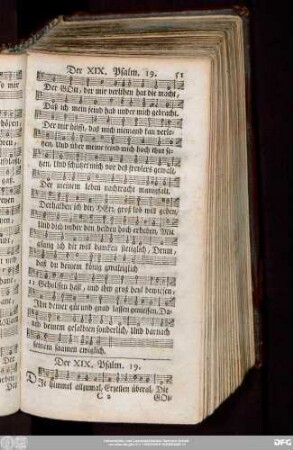 Der XIX. Psalm. 19.
51
Der GOtt, der mir verlihen hat die macht,
Daß ich mein feind hab unter mich gebracht.
Der mir hilfft, daß mich niemand kan verle-
tzen, Und über meine feind mich hoch thut se-
tzen, Und schützet mich vor deß frevlers gewalt,
Der meinem leben nachtracht manigfalt.
Derhalben ich dir, HErr, groß lob will geben,
Und dich unter den heiden hoch erheben, Mit
gsang ich dir will dancken stetiglich, Drum,
daß du deinem König gnädiglich
11 Geholffen hast, und ihm groß heyl bewiesen,
Ihn deiner güt und gnad lassen geniessen, Da-
vid deinem gesalbten sonderlich, Und darnach
seinem saamen ewiglich.
Der XIX. Psalm. 19.
Die himmel allzumal, Erzelen überal, Die
C 2
GOt-